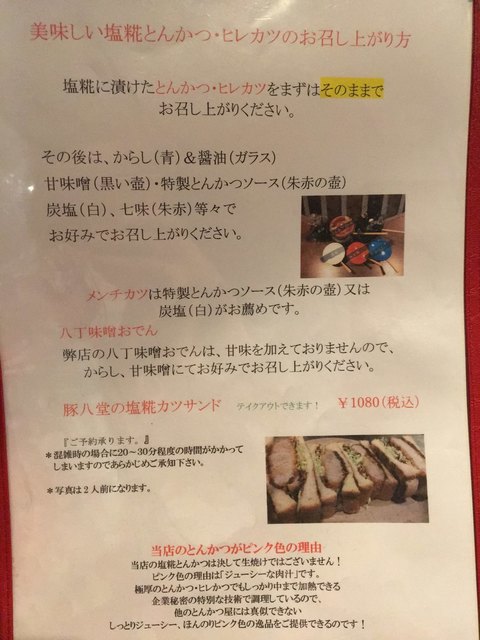 美味しい塩糀とんかつ・ヒレカツのお召し上がり方
塩糀に漬けたとんかつ・ヒレカツをまずはそのままで
お召し上がりください。
その後は、からし(青)&醤油(ガラス)
甘味噌(黒い壺)・特製とんかつソース(朱赤の壺)
炭塩(白)、七味(朱赤)等々で
お好みでお召し上がりください。
メンチカツは特製とんかつソース(朱赤の壺)又は
炭塩(白)がお薦めです。
八丁味噌おでん
弊店の八丁味噌おでんは、甘味を加えておりませんので、
からし、甘味噌にてお好みでお召し上がりください。
豚八堂の塩糀カツサンド テイクアウトできます! ¥1080(税込)
『ご予約承ります。』
*混雑時の場合に20~30分程度の時間がかかって
しまいますのであらかじめご承知下さい。
*写真は2人前になります。
当店のとんかつがピンク色の理由
当店の塩糀とんかつは決して生焼けではございません!
ピンク色の理由は「ジューシーな肉汁」です。
極厚のとんかつ・ヒレかつでもしっかり中まで加熱できる
企業秘密の特別な技術で調理しているので、
他のとんかつ屋には真似できない
しっとりジューシー、ほんのりピンク色の逸品をご提供できるのです!